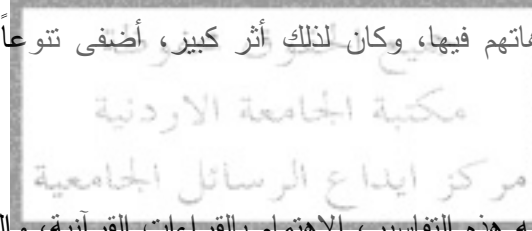 جميع الحقوق محفوظة
هاتهم فيها، وكان لذلك أثر كبير، أضفى تنوعاً
مكتبة الجامعة الاردنية
مركز ايداع الرسائل الجامعية
هذه التفاسير، الاهتمام بالقراءات القرآنية،